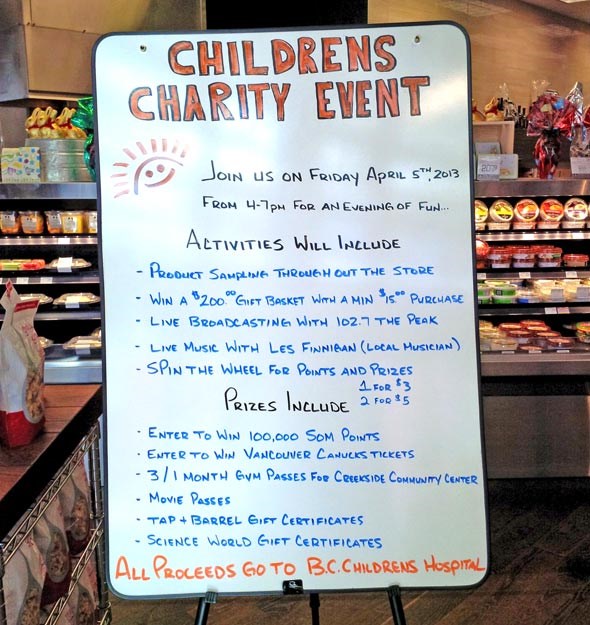 CHILDRENS
CHARITY EVENT
JOIN US ON FRIDAY APRIL 5TH, 2013
FROM 4-7PM FOR AN EVENING OF FUN...
ACTIVITIES WILL INCLUDE
- PRODUCT SAMPLING THROUGH OUT THE STORE
- WIN A $200.00 GIFT BASKET WITH A MIN $15.00 PURCHASE
- LIVE BROADCASTING WITH 102.7 THE PEAK
- LIVE MUSIC WITH LES FINNIGAN (LOCAL MUSICIAN)
- SPIN THE WHEEL FOR POINTS AND PRIZES
1 FOR $3
2 FOR $5
PRIZES INCLUDE
- ENTER TO WIN 100,000 SOM POINTS
- ENTER TO WIN VANCOUVER CANUCKS TICKETS
- 3/1 MONTH GYM PASSES FOR CREEKSIDE COMMUNITY CENTER
- MOVIE PASSES
- TAP + BARREL GIFT CERTIFICATES
- SCIENCE WORLD GIFT CERTIFICATES
ALL PROCEEDS GO TO B.C. CHILDRENS HOSPITAL